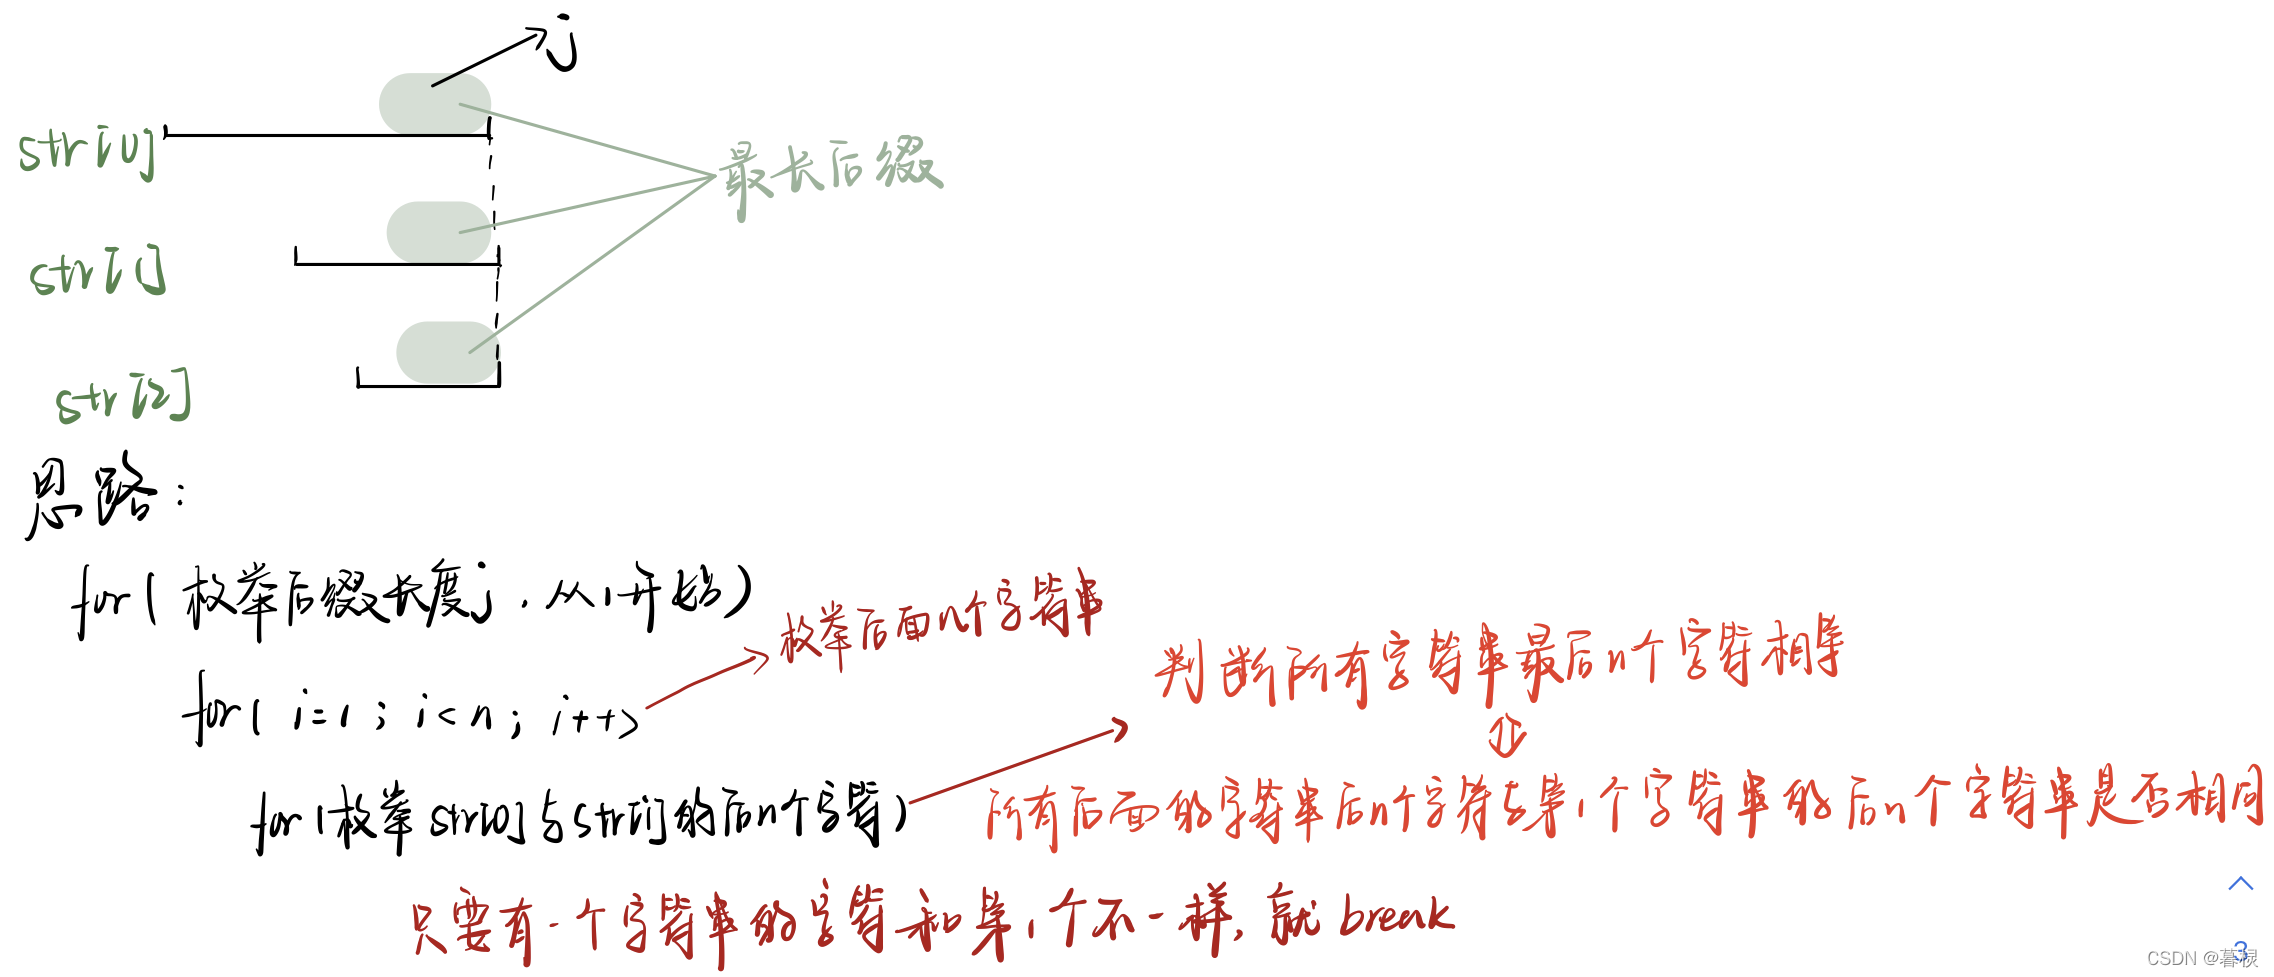 j
str[0]
最长后缀
str[1]
str[2]
思路：
for( 枚举后缀长度j，从1开始)
枚举后面n个字符串
for( i=1 ; i<n ; i++)
判断所有字符串最后n个字符相等
for(枚举str[0]与str[i]的后n个字符)
所有后面的字符串后n个字符与第1个字符串的后n个字符串是否相同
只要有一个字符串的字符和第1个不一样，就break
3
CSDN @暮禄